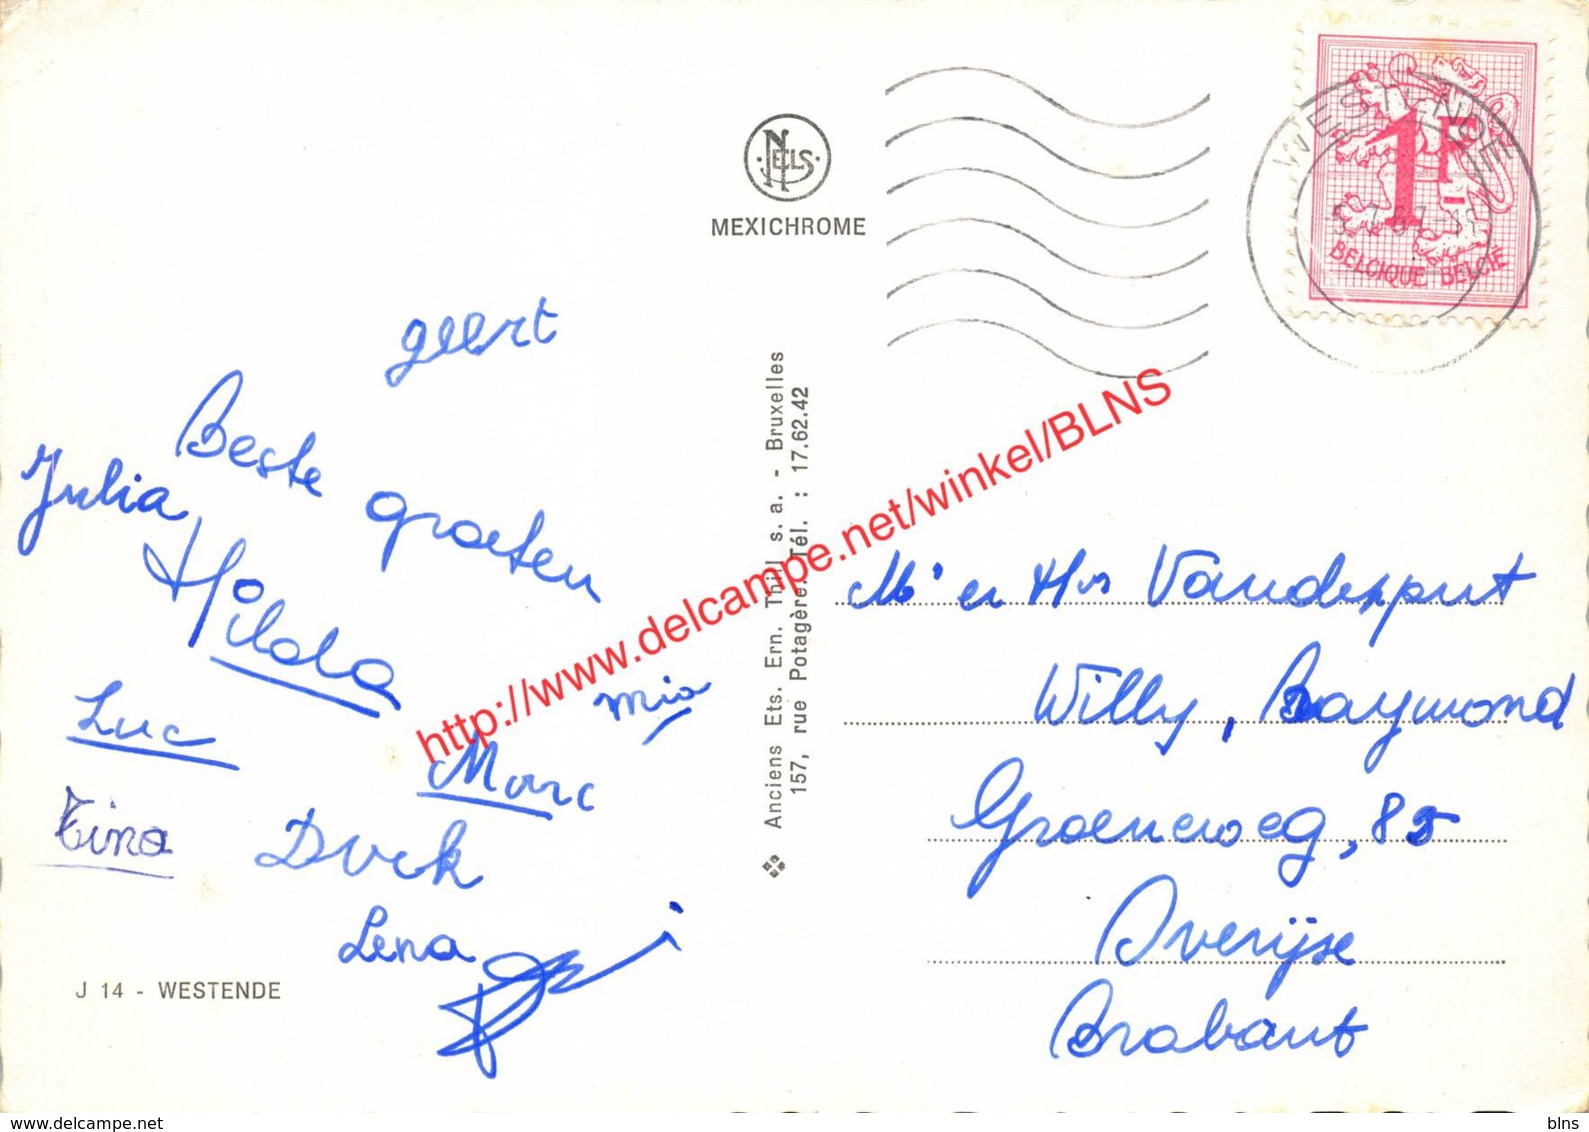 geert
Beste groeten
Julia
Hilda
Mia
Luc
Marc
Tina
Dirk
Lena
J 14 - WESTENDE
NELS
MEXICHROME
Anciens Ets. Ern. Thill s. a. - Bruxelles
157, rue Potagère. Tél. : 17.62.42
WESTENDE
1F
BELGIQUE-BELGIË
M' en Hr Vandenput
Willy, Raymond
Groeneweg, 85
Overijse
Brabant
http://www.delcampe.net/winkel/BLNS
delcampe.net
blns